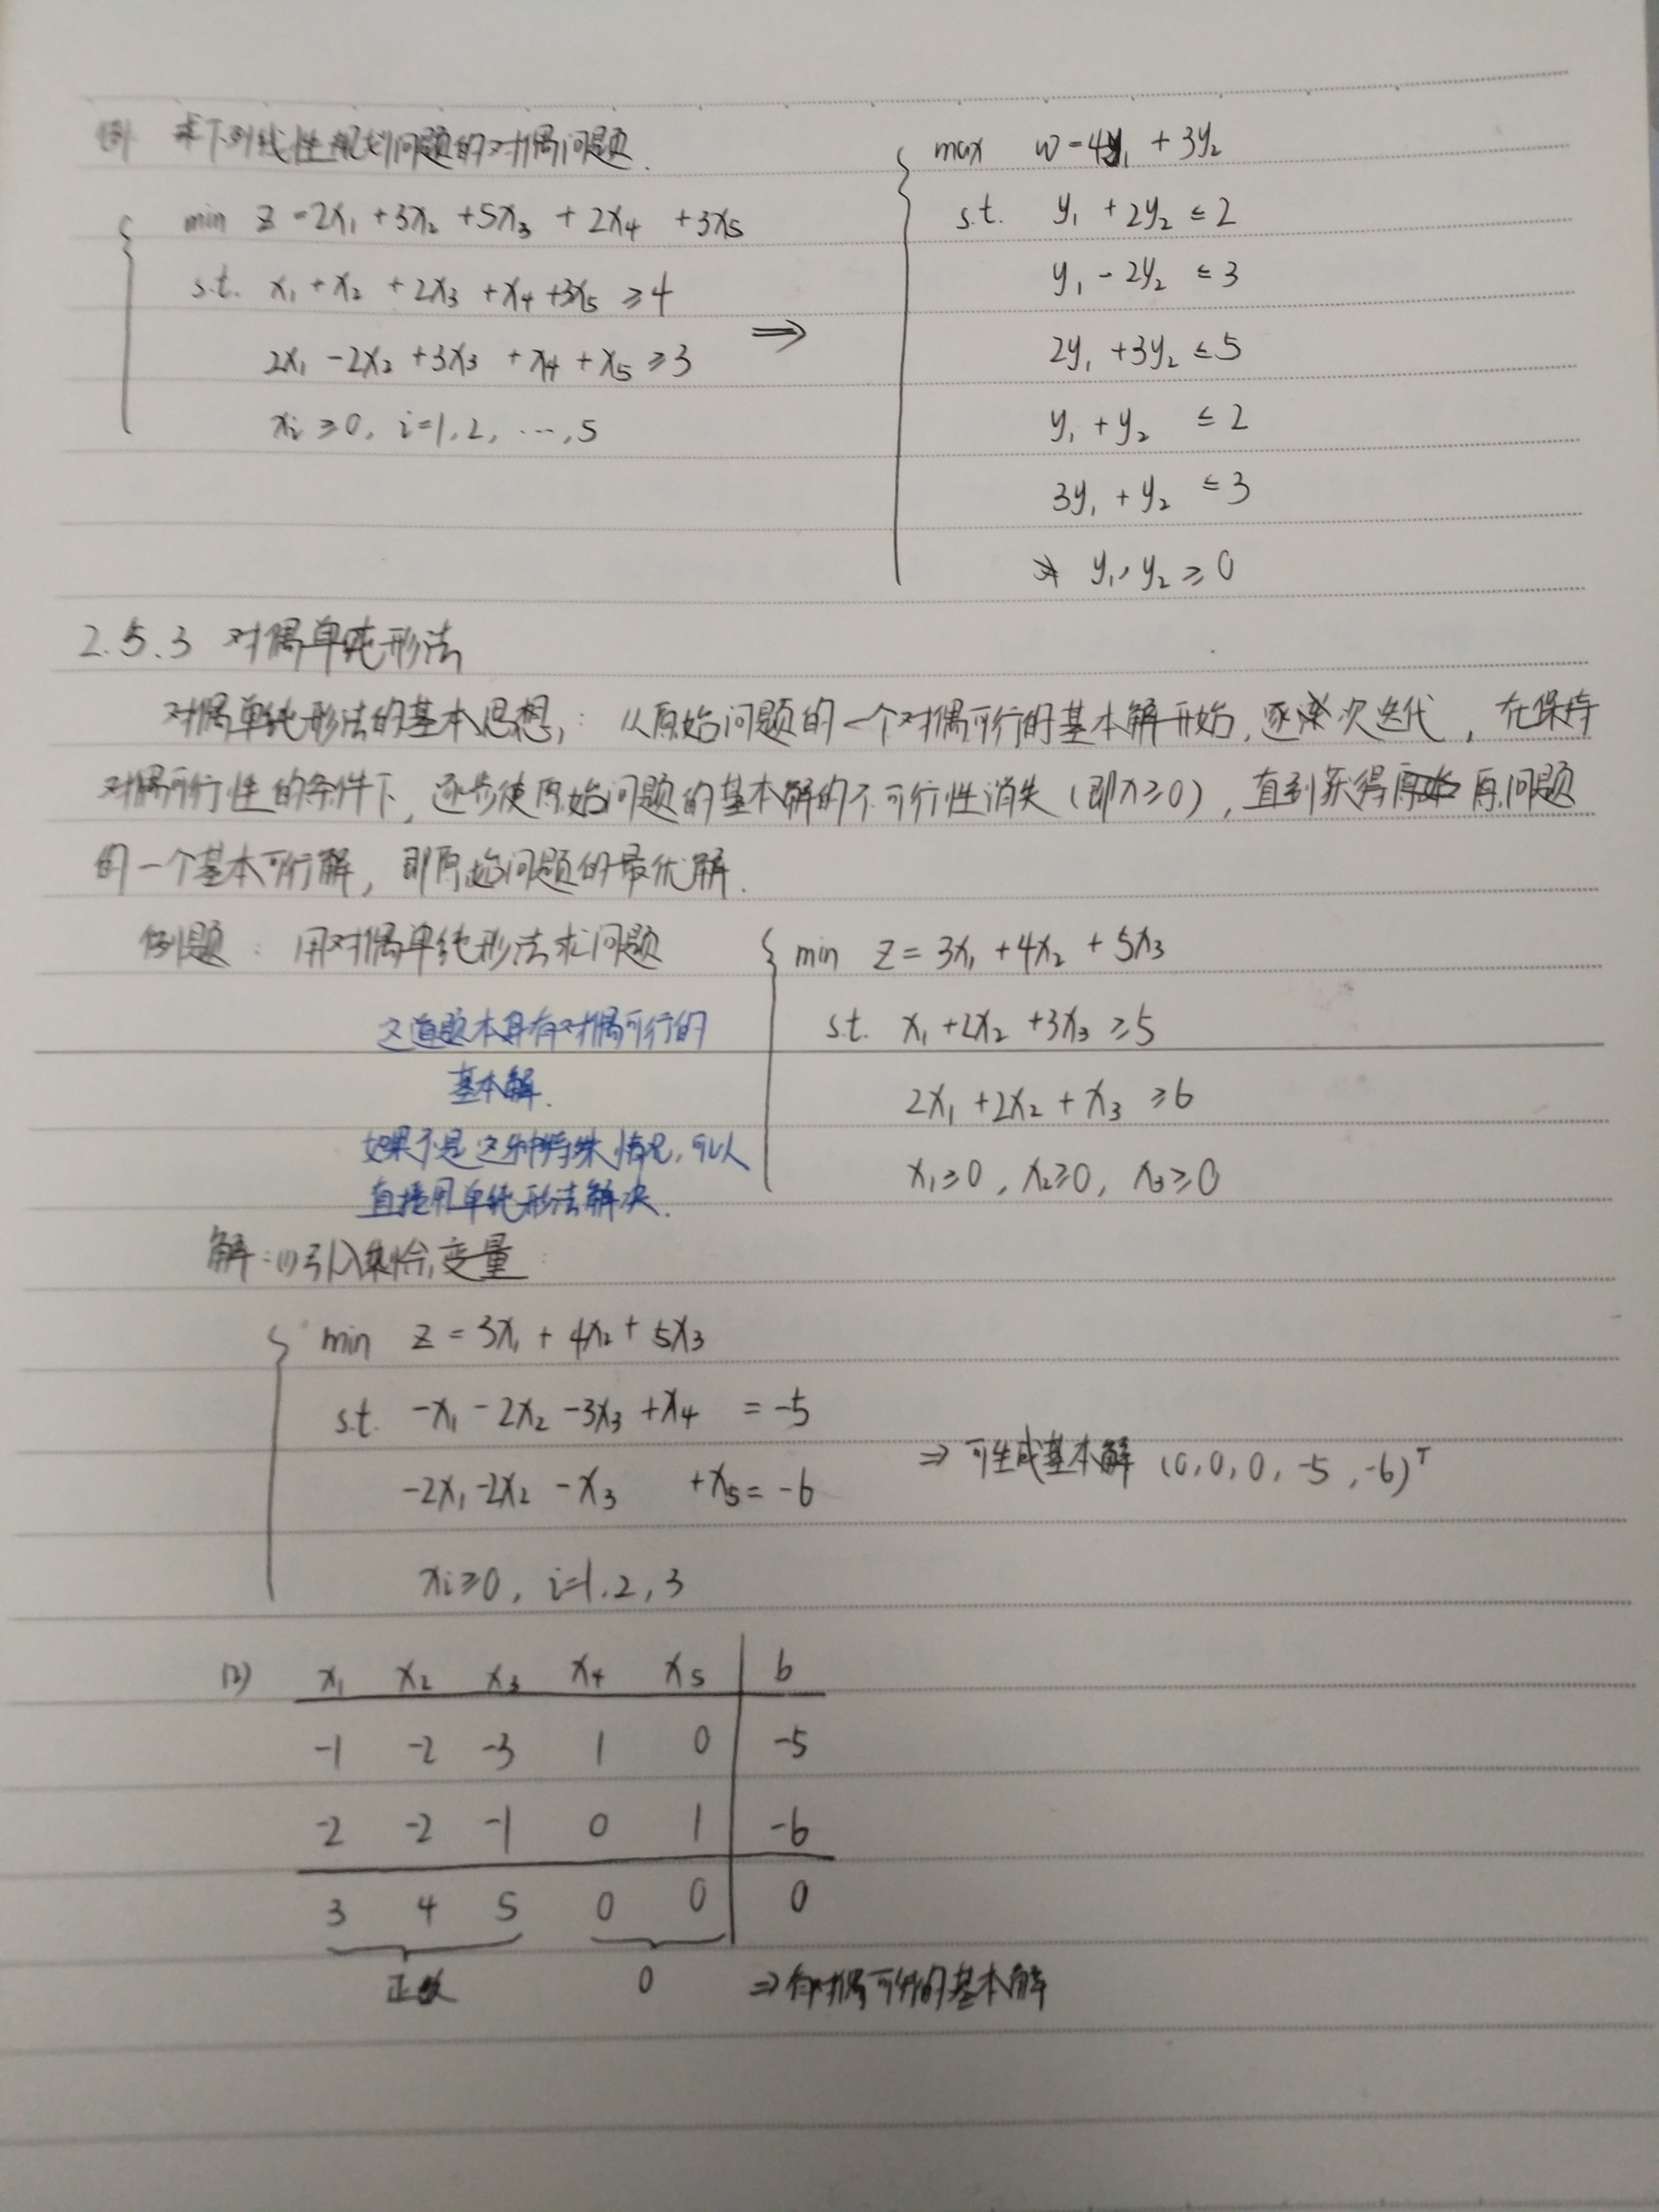 例 求下列线性规划问题的对偶问题.
min z=2x₁+3x₂+5x₃+2x₄+3x₅
s.t. x₁+x₂+2x₃+x₄+3x₅≥4
2x₁-2x₂+3x₃+x₄+x₅≥3
xᵢ≥0, i=1,2,…,5
⇒
max w=4y₁+3y₂
s.t. y₁+2y₂≤2
y₁-2y₂≤3
2y₁+3y₂≤5
y₁+y₂≤2
3y₁+y₂≤3
y₁,y₂≥0
2.5.3 对偶单纯形法
对偶单纯形法的基本思想: 从原始问题的一个对偶可行的基本解开始,逐次迭代,在保持
对偶可行性的条件下,逐步使原始问题的基本解的不可行性消失(即x≥0),直到获得原问题
的一个基本可行解,即原始问题的最优解.
例题: 用对偶单纯形法求问题
min z=3x₁+4x₂+5x₃
s.t. x₁+2x₂+3x₃≥5
2x₁+2x₂+x₃≥6
x₁≥0, x₂≥0, x₃≥0
这道题本身有对偶可行的
基本解.
如果不是这种特殊情况,可以
直接用单纯形法解决.
解:(1)引入剩余变量:
min z=3x₁+4x₂+5x₃
s.t. -x₁-2x₂-3x₃+x₄=-5
-2x₁-2x₂-x₃+x₅=-6
xᵢ≥0, i=1.2,3
⇒可生成基本解(0,0,0,-5,-6)ᵀ
(2) x₁ x₂ x₃ x₄ x₅ b
-1 -2 -3 1 0 -5
-2 -2 -1 0 1 -6
3 4 5 0 0 0
正数 0 ⇒有对偶可行的基本解